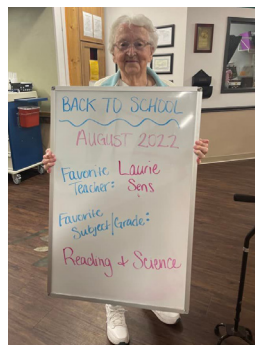 BACK TO SCHOOL
AUGUST 2022
Favorite Laurie
Teacher: Sens
Favorite
Subject/Grade:
Reading + Science